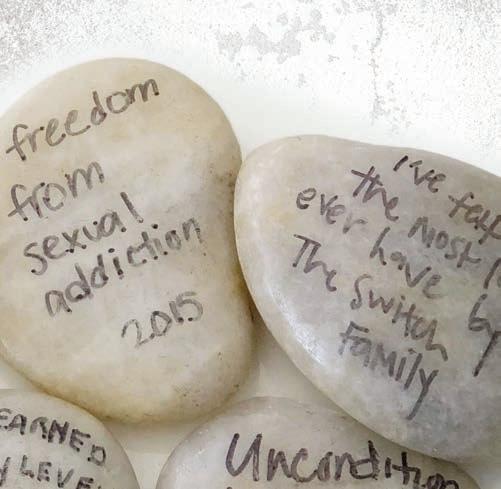 freedom
from
sexual
addiction
2015
I've felt
the most
ever have by
The Switch
Family
EARNED
LEVE
Uncondition